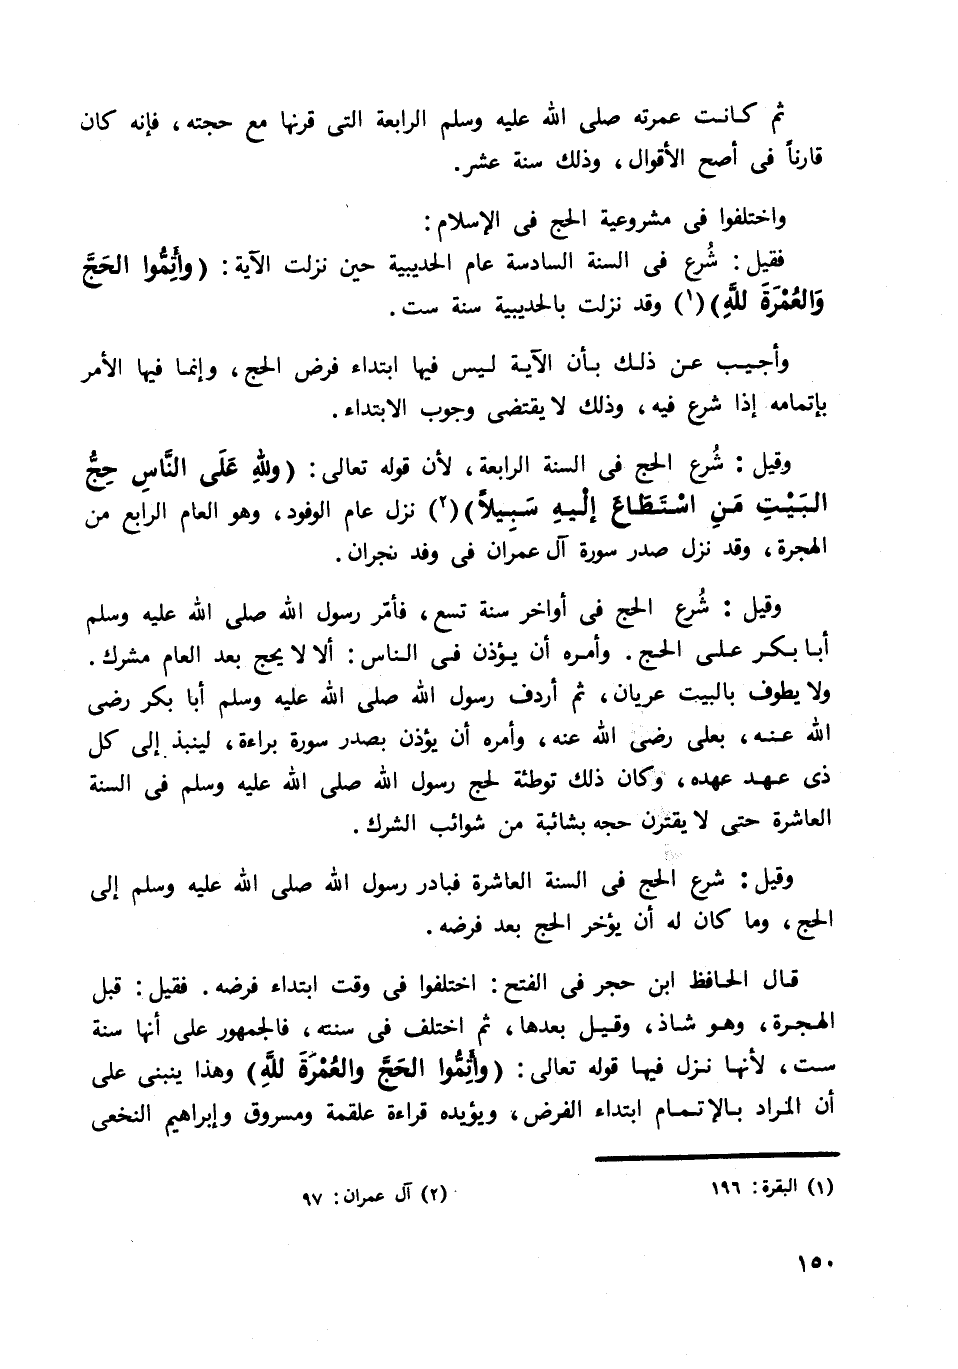 ثم كانت عمرته صلى الله عليه وسلم الرابعة التى قرنها مع حجته، فإنه كان
قارناً فى أصح الأقوال، وذلك سنة عشر.
واختلفوا فى مشروعية الحج فى الإسلام:
فقيل: شُرع فى السنة السادسة عام الحديبية حين نزلت الآية: (وأَتِمُّوا الحَجَّ
وَالعُمْرَةَ للَّهِ)(١) وقد نزلت بالحديبية سنة ست.
وأجيب عن ذلك بأن الآية ليس فيها ابتداء فرض الحج، وإنما فيها الأمر
بإتمامه إذا شرع فيه، وذلك لا يقتضى وجوب الابتداء.
وقيل: شُرع الحج فى السنة الرابعة، لأن قوله تعالى: (وللهِ عَلَى النَّاسِ حِجُّ
البَيْتِ مَنِ اسْتَطَاعَ إلْيهِ سَبِيلاً)(٢) نزل عام الوفود، وهو العام الرابع من
الهجرة، وقد نزل صدر سورة آل عمران فى وفد نجران.
وقيل: شُرع الحج فى أواخر سنة تسع، فأمّر رسول الله صلى الله عليه وسلم
أبا بكر على الحج. وأمره أن يؤذن فى الناس: ألا لا يحج بعد العام مشرك.
ولا يطوف بالبيت عريان، ثم أردف رسول الله صلى الله عليه وسلم أبا بكر رضى
الله عنه، بعلى رضى الله عنه، وأمره أن يؤذن بصدر سورة براءة، لينبذ إلى كل
ذى عهد عهده، وكان ذلك توطئة لحج رسول الله صلى الله عليه وسلم فى السنة
العاشرة حتى لا يقترن حجه بشائبة من شوائب الشرك.
وقيل: شرع الحج فى السنة العاشرة فبادر رسول الله صلى الله عليه وسلم إلى
الحج، وما كان له أن يؤخر الحج بعد فرضه.
قال الحافظ ابن حجر فى الفتح: اختلفوا فى وقت ابتداء فرضه. فقيل: قبل
الهجرة، وهو شاذ، وقيل بعدها، ثم اختلف فى سنته، فالجمهور على أنها سنة
ست، لأنها نزل فيها قوله تعالى: (وأَتِمُّوا الحَجَّ والعُمْرَةَ للَّهِ) وهذا ينبنى على
أن المراد بالإتمام ابتداء الفرض، ويؤيده قراءة علقمة ومسروق وإبراهيم النخعى
(١) البقرة: ١٩٦
(٢) آل عمران: ٩٧
١٥٠